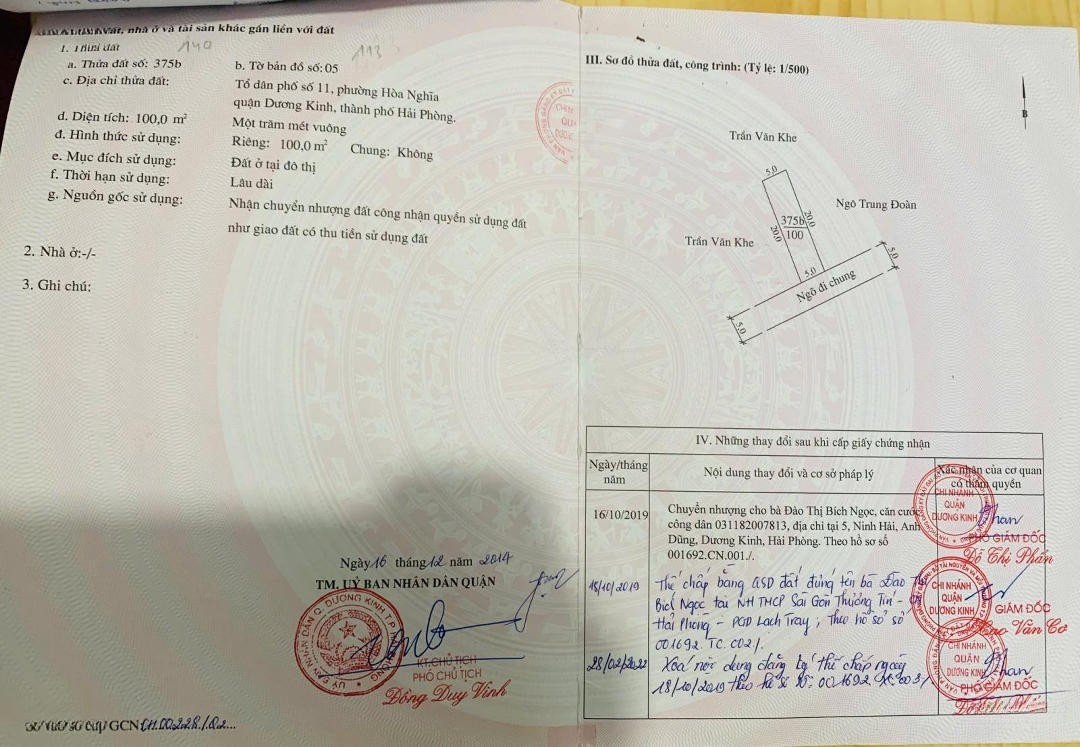 nhà ở và tài sản khác gắn liền với đất
1. Thửa đất
140
113
a. Thửa đất số: 375b
b. Tờ bản đồ số: 05
c. Địa chỉ thửa đất:
Tổ dân phố số 11, phường Hòa Nghĩa
quận Dương Kinh, thành phố Hải Phòng.
d. Diện tích: 100,0 m²
Một trăm mét vuông
đ. Hình thức sử dụng:
Riêng: 100,0 m² Chung: Không
e. Mục đích sử dụng:
Đất ở tại đô thị
f. Thời hạn sử dụng:
Lâu dài
g. Nguồn gốc sử dụng:
Nhận chuyển nhượng đất công nhận quyền sử dụng đất
như giao đất có thu tiền sử dụng đất
2. Nhà ở:-/-
3. Ghi chú:
Ngày 16 tháng 12 năm 2014
TM. UỶ BAN NHÂN DÂN QUẬN
KT.CHỦ TỊCH
PHÓ CHỦ TỊCH
Đồng Duy Vinh
Số vào sổ cấp GCN: CH.00228/Q2...
III. Sơ đồ thửa đất, công trình: (Tỷ lệ: 1/500)
B
Trần Văn Khe
5,0
Ngô Trung Đoàn
20,0
375b
100
20,0
Trần Văn Khe
5,0
Ngõ đi chung
5,0
5,0
IV. Những thay đổi sau khi cấp giấy chứng nhận
Ngày/tháng
năm
Nội dung thay đổi và cơ sở pháp lý
Xác nhận của cơ quan
có thẩm quyền
16/10/2019
Chuyển nhượng cho bà Đào Thị Bích Ngọc, căn cước
công dân 031182007813, địa chỉ tại 5, Ninh Hải, Anh
Dũng, Dương Kinh, Hải Phòng. Theo hồ sơ số
001692.CN.001./.
CHI NHÁNH
QUẬN
DƯƠNG KINH
PHÓ GIÁM ĐỐC
Đỗ Thị Phấn
18/10/2019
Thế chấp bằng QSD đất đứng tên bà Đào Thị
Bích Ngọc tại NH TMCP Sài Gòn Thương Tín - CN
Hải Phòng - PGD Lạch Tray; Theo hồ sơ số
001692.TC.002/.
CHI NHÁNH
QUẬN
DƯƠNG KINH
GIÁM ĐỐC
Cao Văn Cơ
28/02/2022
Xóa nội dung đăng ký thế chấp ngày
18/10/2019 theo hồ sơ số: 001692.XC.003/.
CHI NHÁNH
QUẬN
DƯƠNG KINH
PHÓ GIÁM ĐỐC